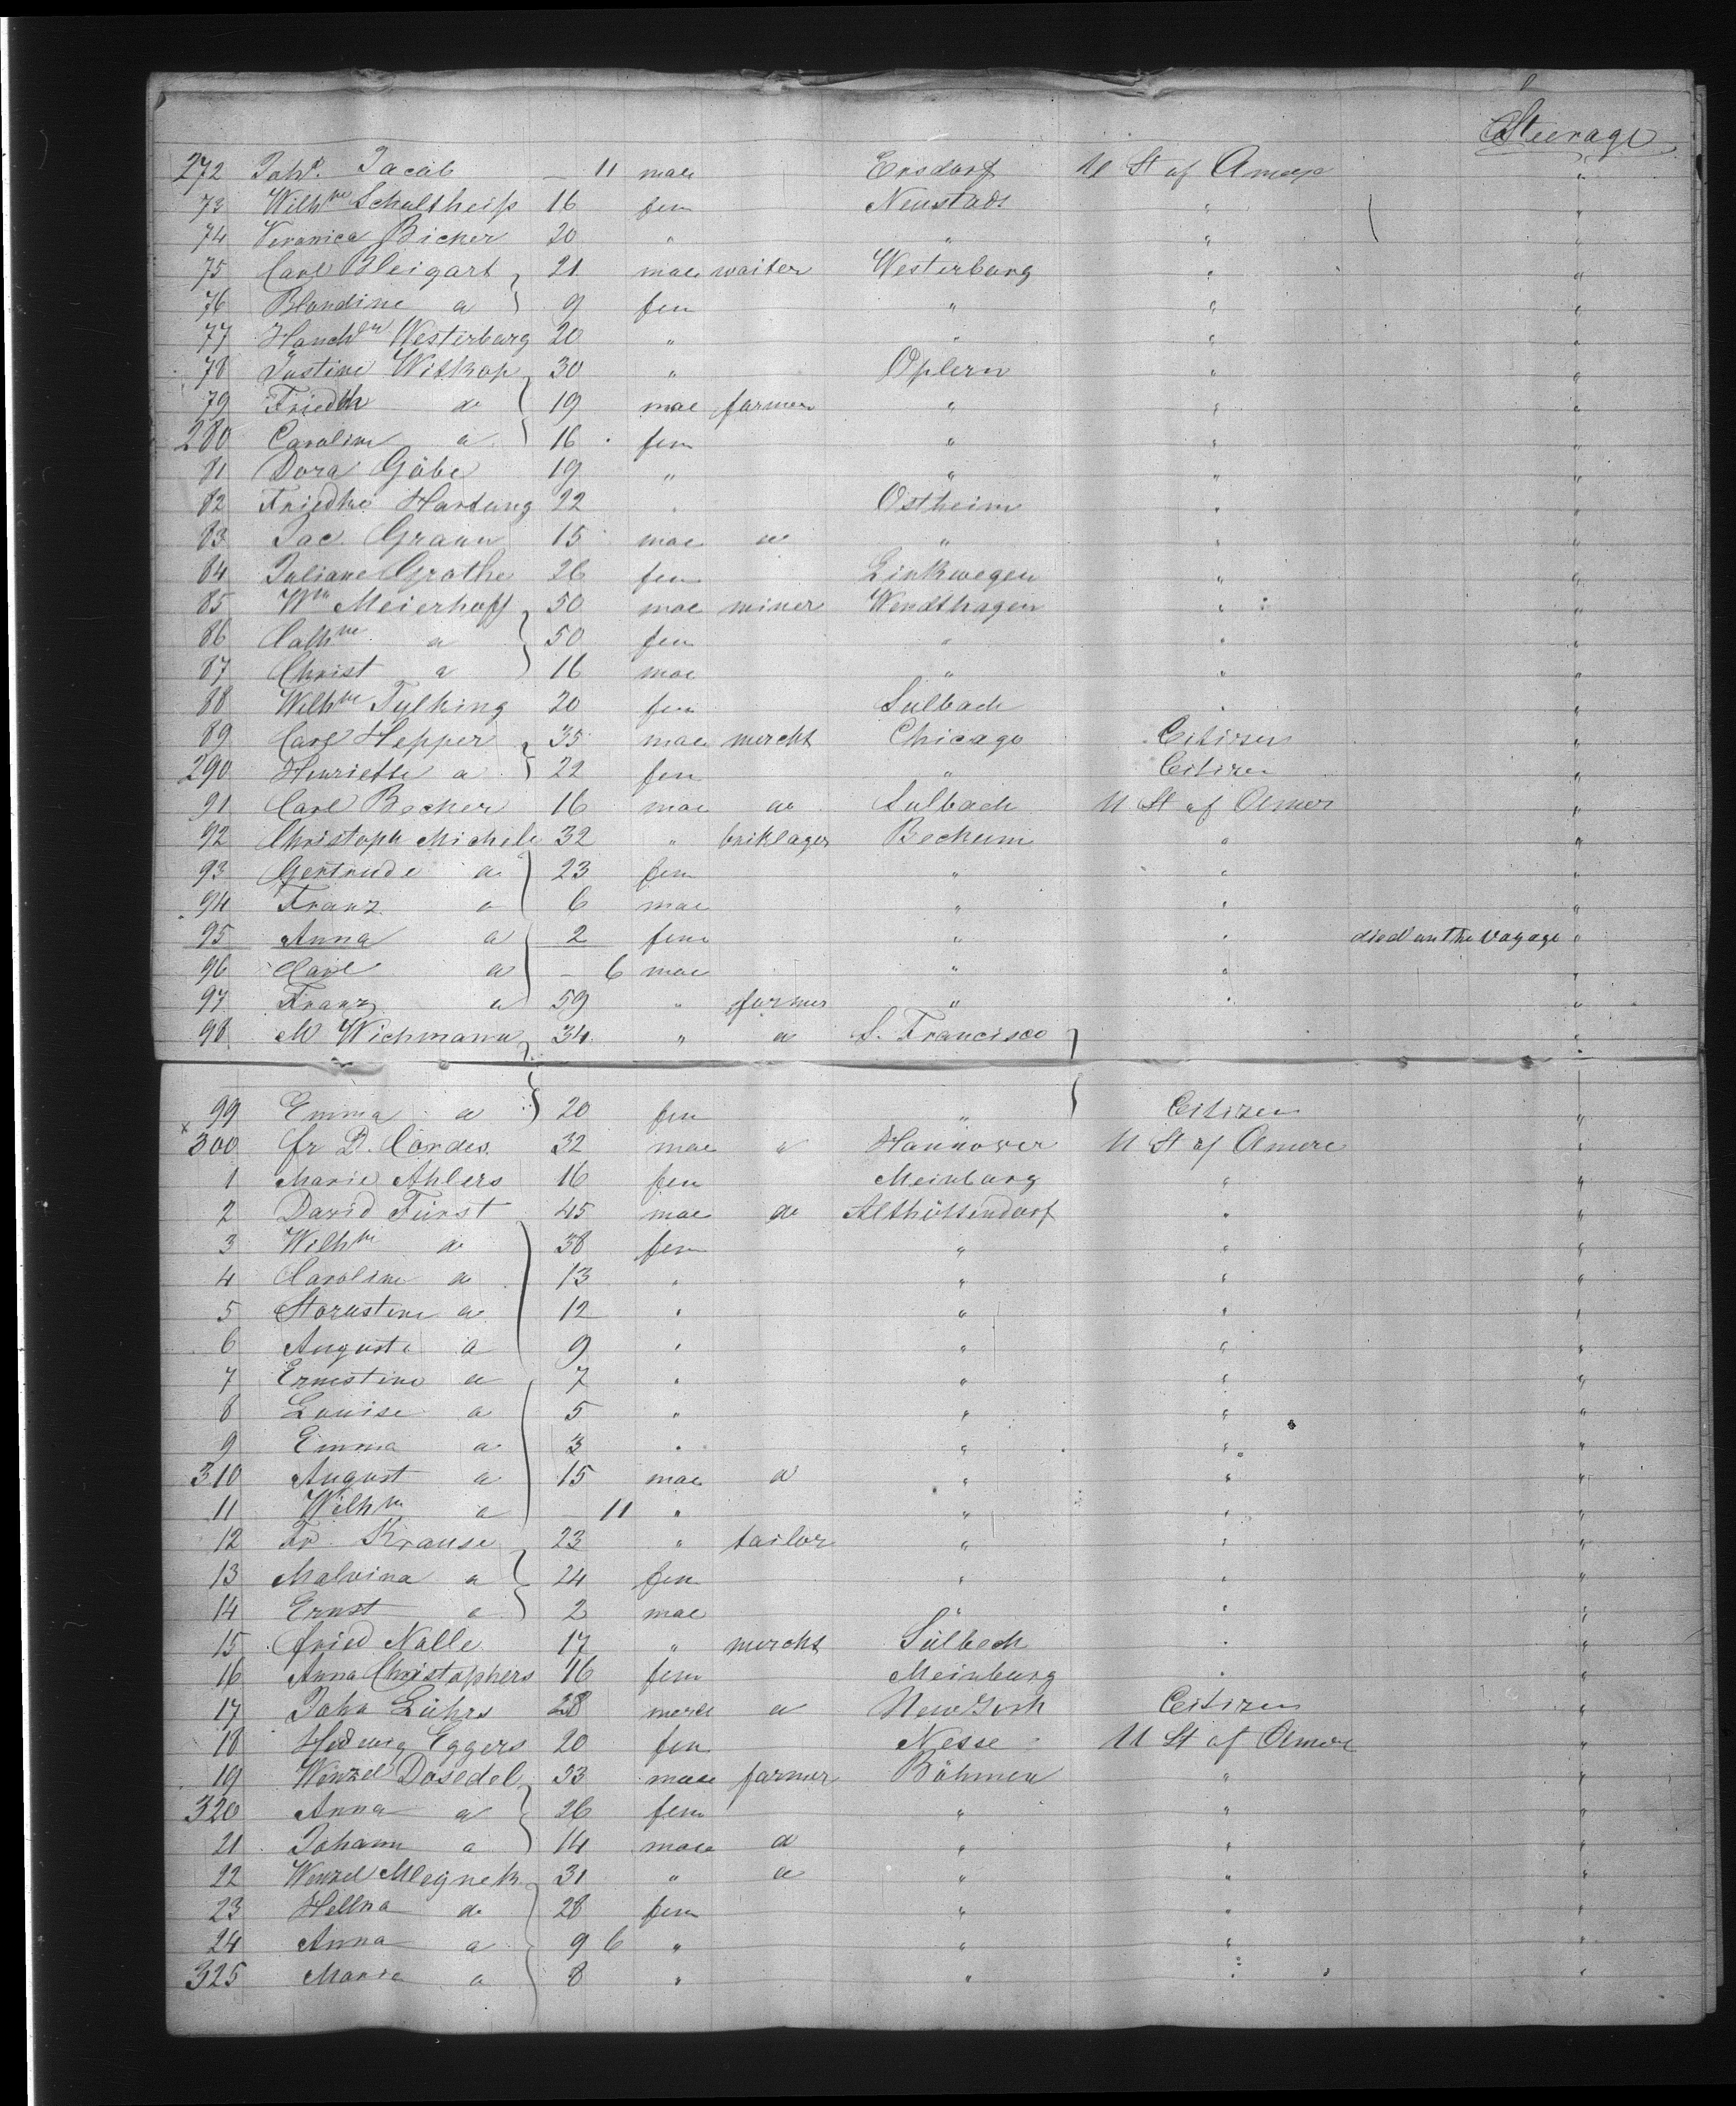 Steerage
272 Joh. Jacob — 11 mae Ensdorf U St of Amer "
73 Wilhne Schultheiß 16 fem Neustadt " "
74 Veronica Bicher 20 " " " "
75 Carl Bleigart 21 mae waiter Westerburg " "
76 Blandine a 9 fem " " "
77 Hanchen Westerburg 20 " " " "
78 Justine Witkop 30 " Oplern " "
79 Friedch do 19 mae farmer " " "
280 Caroline a 16 fem " " "
81 Dora Gäbe 19 " " " "
82 Friedke Hartung 22 " Ostheim " "
83 Jac. Graun 15 mae a " " "
84 Juliane Grothe 26 fem Linkwegen " "
85 Wm Meierhoff 50 mae miner Wendthagen " "
86 Cathne a 50 fem " " "
87 Christ a 16 mae " " "
88 Wilhne Fylking 20 fem Sulbach " "
89 Carl Hepper 35 mae mercht Chicago Citizen "
290 Henriette a 22 fem " Citizen "
91 Carl Becker 16 mae a Sulbach U St of Amer "
92 Christoph Michels 32 " briklager Bechum " "
93 Gertrude a 23 fem " " "
94 Franz a 6 mae " " "
95 Anna a 2 fem " " died on the voyage "
96 Carl a — 6 mae " " "
97 Franz a 59 " farmer " " "
98 M Wichmann 34 " a S. Francisco "
99 Emma a 20 fem " Citizen "
x 300 fr D. Cordes 32 mae " Hannover U St of Amere "
1 Marie Ahlers 16 fem Meinburg " "
2 David Fürst 45 mae do Althüttendorf " "
3 Wilhne a 38 fem " " "
4 Caroline a 13 " " " "
5 a 12 " " " "
6 Auguste a 9 " " " "
7 Ernestine a 7 " " " "
8 Louise a 5 " " " "
9 Emma a 3 " " " "
310 August a 15 mae a " " "
11 Wilhm a 11 " " " "
12 Fr. Krause 23 " tailor " " "
13 Malvina a 24 fem " " "
14 Ernst a 2 mae " " "
15 fried Nalle 17 " mercht Sülbech " "
16 Anna Christophers 16 fem Meinburg " "
17 John Lührs 28 mae a New York Citizen "
18 Hedwig Eggers 20 fem Nesse U St of Amere "
19 Wenzel Dosedel 33 mae farmer Böhmen " "
320 Anna a 26 fem " " "
21 Johann a 14 mae a " " "
22 Wenzel Mlegnek 31 " a " " "
23 Hellna do 28 fem " " "
24 Anna a 9 6 " " " "
325 Marie a 8 " " " "